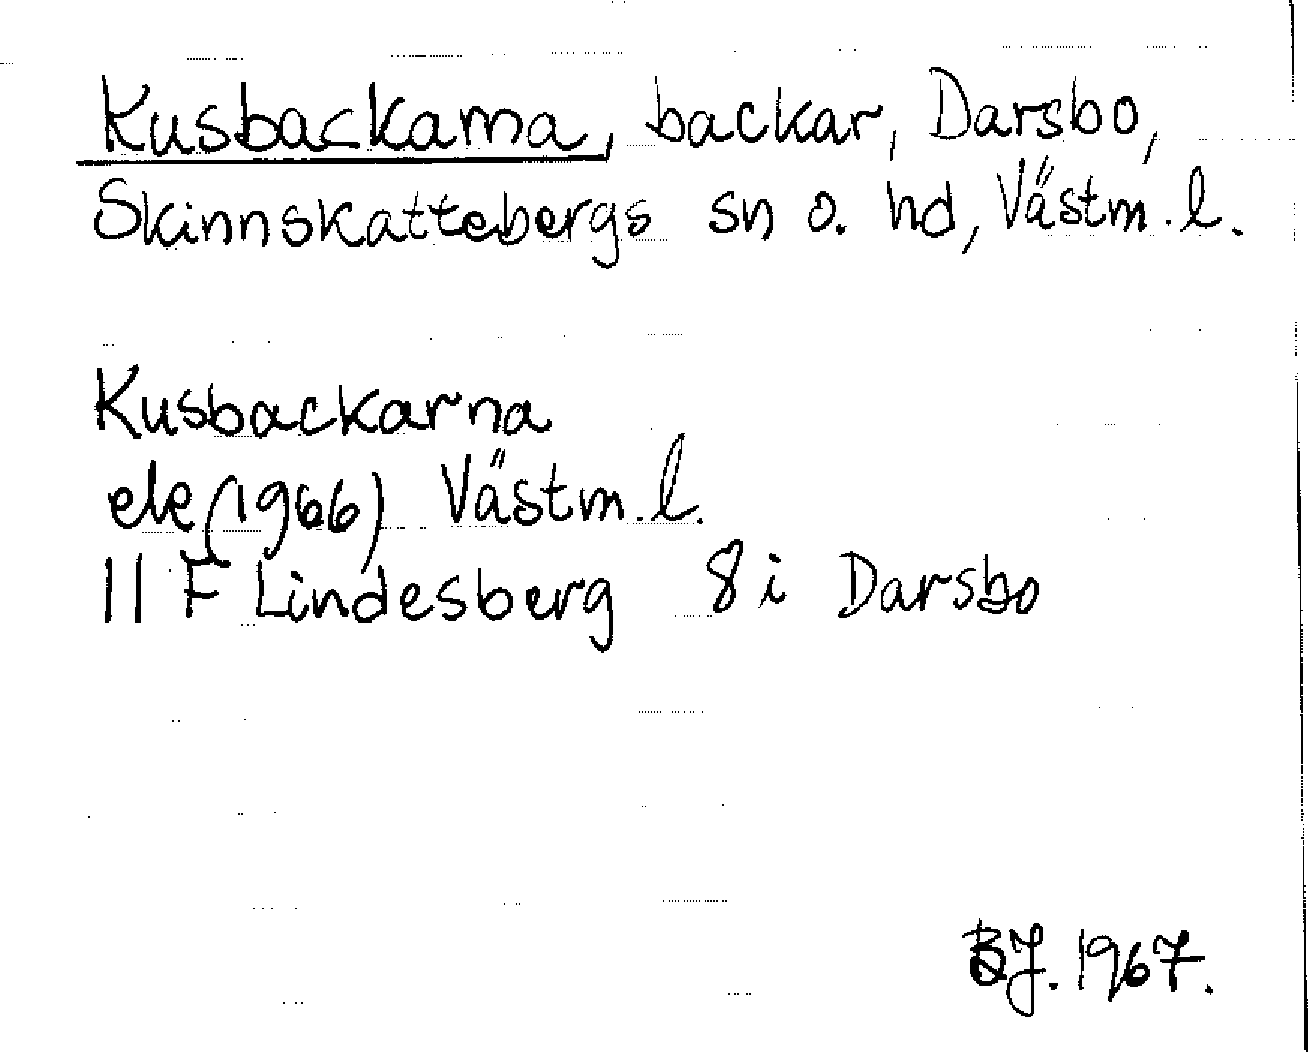 Kusbackarna, backar, Darsbo,
Skinnskattebergs sn o. hd, Västm. l.
Kusbackarna
ek (1966) Västm. l.
11 F Lindesberg 8 i Darsbo
BJ. 1967.